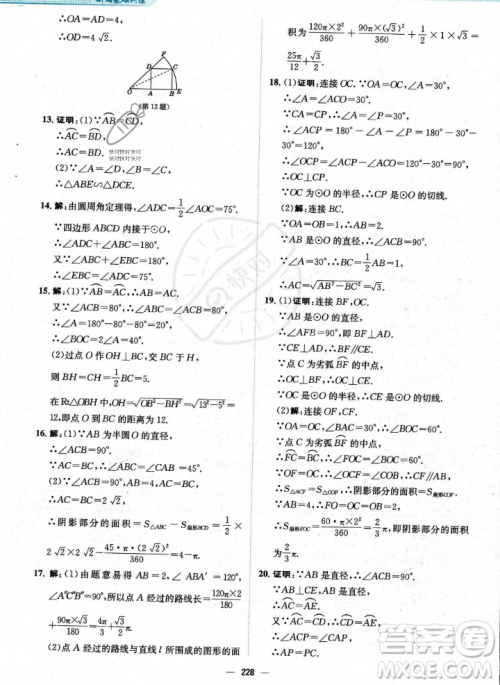 ∴OA=4√2.
F
C
D
O
A
B
E
(第12题)
13. 证明:(1)∵AB=CD,
∴AC=BD.
∴AC=BD.
(2)∵∠A=∠D,∠B=∠C,
∴△ABE∽△DCE.
14. 解:由圆周角定理得,∠ABC=1/2∠AOC=75°.
∵四边形 ABCD 内接于⊙O,
∴∠ABC+∠ADC=180°.
∵∠EBC+∠ABC=180°,
∴∠EBC=∠ADC=75°.
15. 解:(1)∵AB=AC,∴AB=AC,
∴∠ABC=∠ACB=80°.
∴∠A=180°-80°-80°=20°.
(2)过点 O 作 OH⊥BC 于点 H,
则 BH=CH=1/2BC=5.
在 Rt△OBH 中,OH=√(OB²-BH²)=√(13²-5²)=
12,即点 O 到 BC 的距离为 12.
16. 解:(1)∵AB 为半圆 O 的直径,
∴∠ACB=90°.
∵AC=BC,∴AC=BC.
(2)∵AC=BC=2√2,∠ACB=90°,
∴∠B=45°.
∴阴影部分的面积=S△ABC-S扇形BCD=1/2×
2√2×2√2-45·π·(2√2)²/360=4-π.
17. 解:(1)由题意易得 AC=2,∠A'BA=120°,
∠A'A''C''=90°,所以点 A 经过的路线长=120π×2/180+
90π×√3/180=4π/3+√3/2π.
(2)点 A 经过的路线与直线 l 所围成的图形的面
积为120π×2²/360+90π×(√3)²/360+1/2×1×√3=
25π/12+√3/2.
18. (1)证明:连接 OC.
∵AC=PC,∠A=30°,
∴∠APC=∠A=30°.
∴∠ACP=180°-∠A-∠APC=180°-30°-
30°=120°.
∵OA=OC,∴∠ACO=∠A=30°.
∴∠OCP=∠ACP-∠ACO=90°.
∵OC 为⊙O 的半径,∴PC 是⊙O 的切线.
(2)解:连接 BC.
∵AB 为⊙O 的直径,∴∠ACB=90°.
∵∠A=30°,∴BC=1/2AB=1.
∴AC=√(AB²-BC²)=√(2²-1²)=√3.
19. (1)证明:连接 BF,OC.
∵AB 是⊙O 的直径,
∴∠AFB=90°,即 BF⊥AD.
∵CE⊥AD,∴BF∥CE.
∵点 C 为劣弧BF的中点,
∴OC⊥BF.∴OC⊥CE.
∵OC 是⊙O 的半径,
∴CE 是⊙O 的切线.
(2)解:连接 OF,CF.
∵OA=OC,∠BAC=30°,∴∠BOC=60°.
∵点 C 为劣弧BF的中点,
∴FC=BC.∴∠FOC=∠BOC=60°.
∵OF=OC,∴∠OCF=∠COB.∴CF∥AB.
∴S△ACF=S△COF.∴阴影部分的面积=S扇形COF.
∵AB=4,∴FO=OC=OB=2.
∴S扇形FOC=60·π·2²/360=2/3π,即阴影部分的面积
为2/3π.
20. 证明:(1)∵AB 是直径,
∴∠ADB=90°.∴AD⊥BC.
∵OA=OB,CE=BE,
228